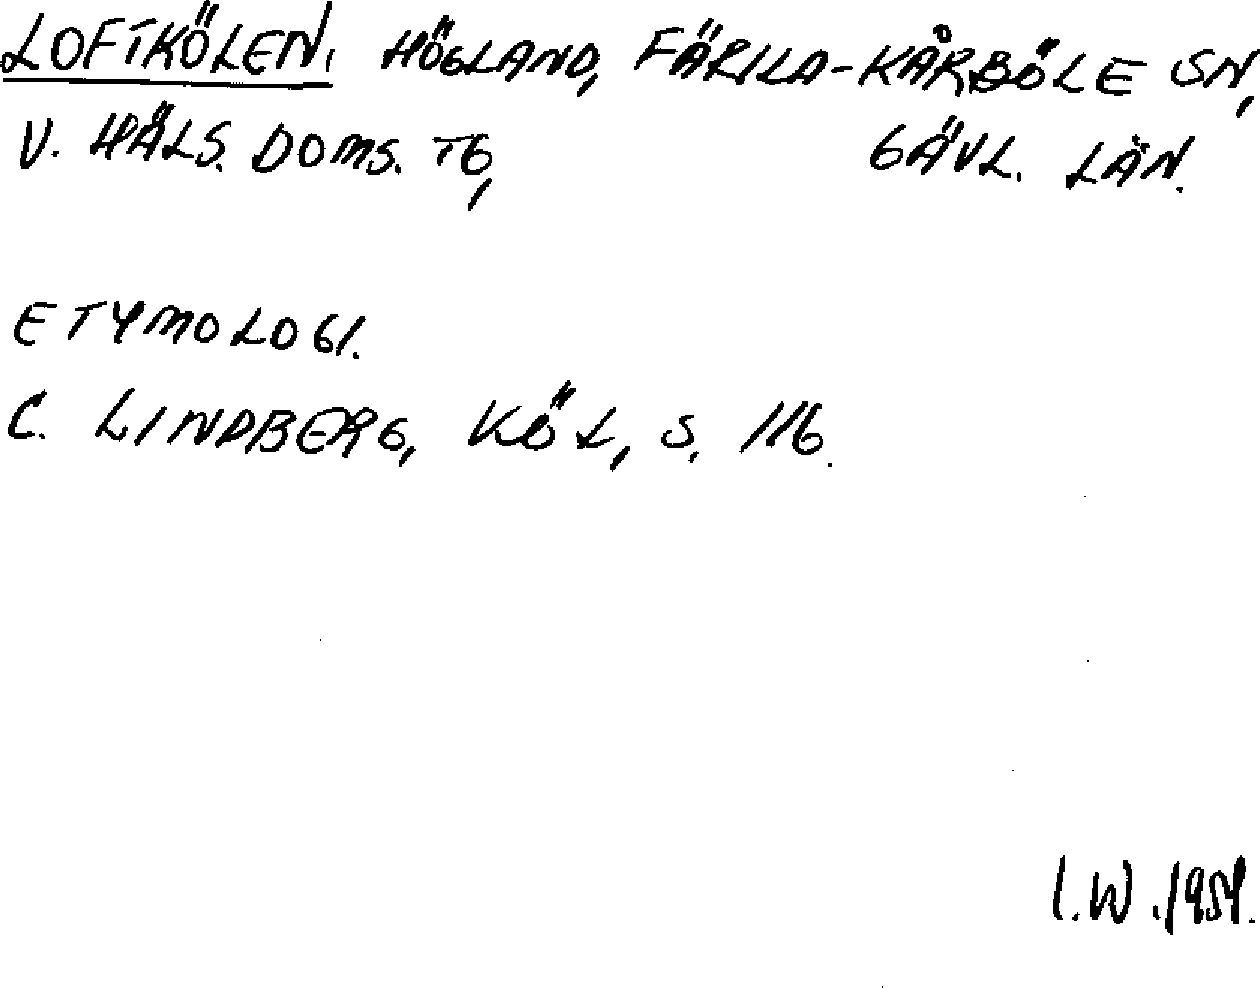 LOFTKÖLEN, HÖGLAND, FÄRILA-KÅRBÖLE SN,
V. HÄLS. DOMS. TG, GÄVL. LÄN.
ETYMOLOGI.
C. LINDBERG, KÖL, S. 116.
I.W. 1954.